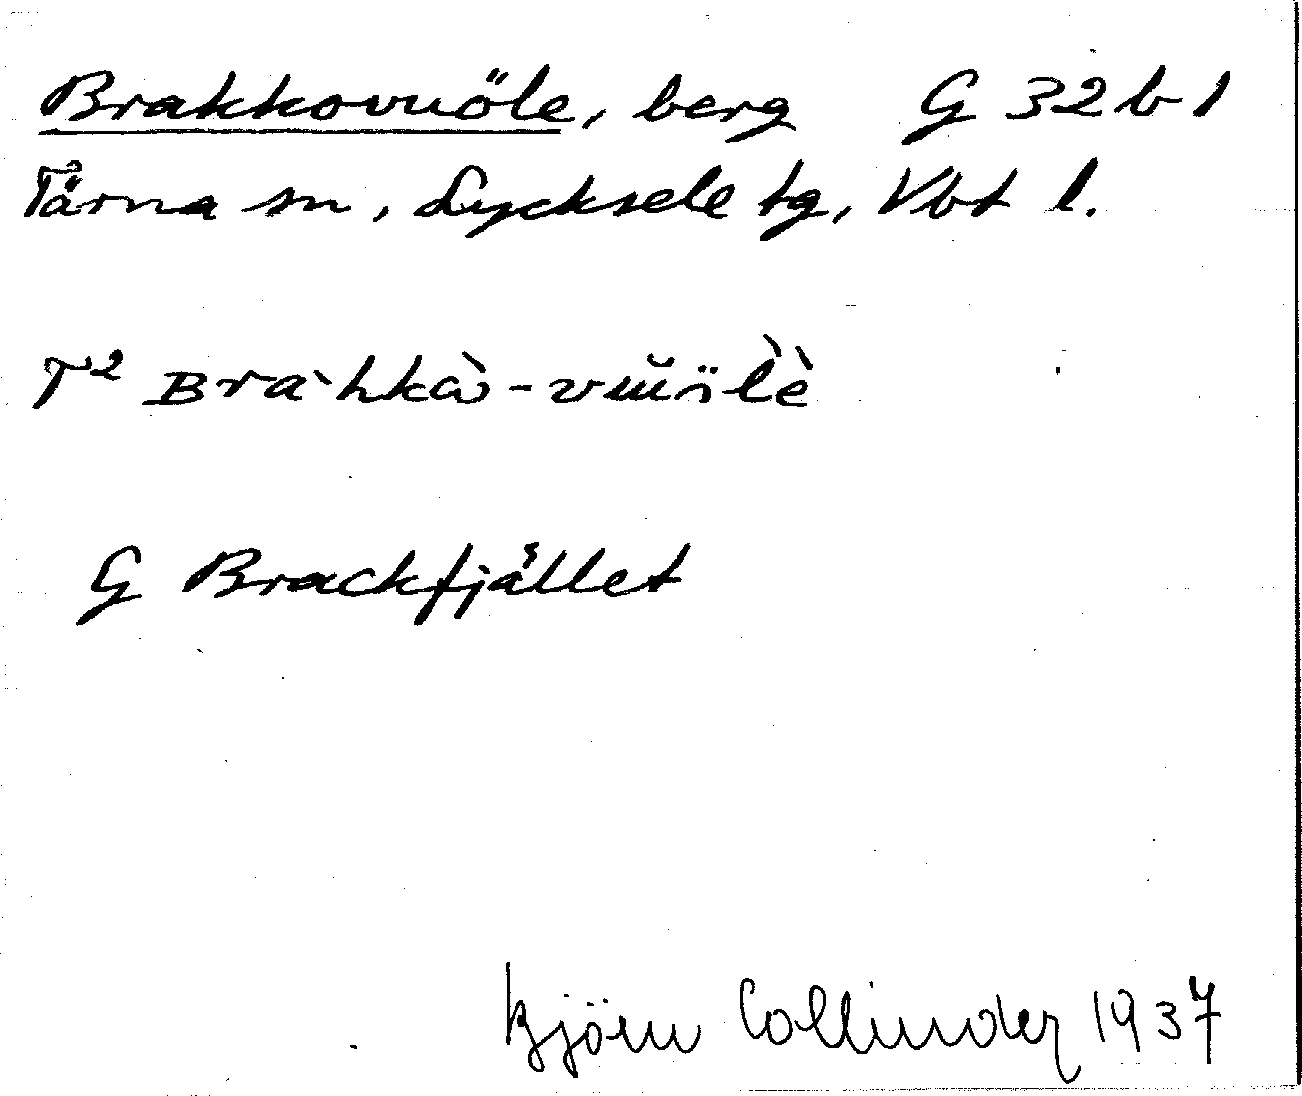 Brakkovuöle, berg G 32 b 1
Tärna sn, Lycksele tg, Vbt l.
T² Braˋhkàˋ-vŭöl̀è
G Brackfjället
Björn Collinder 1937